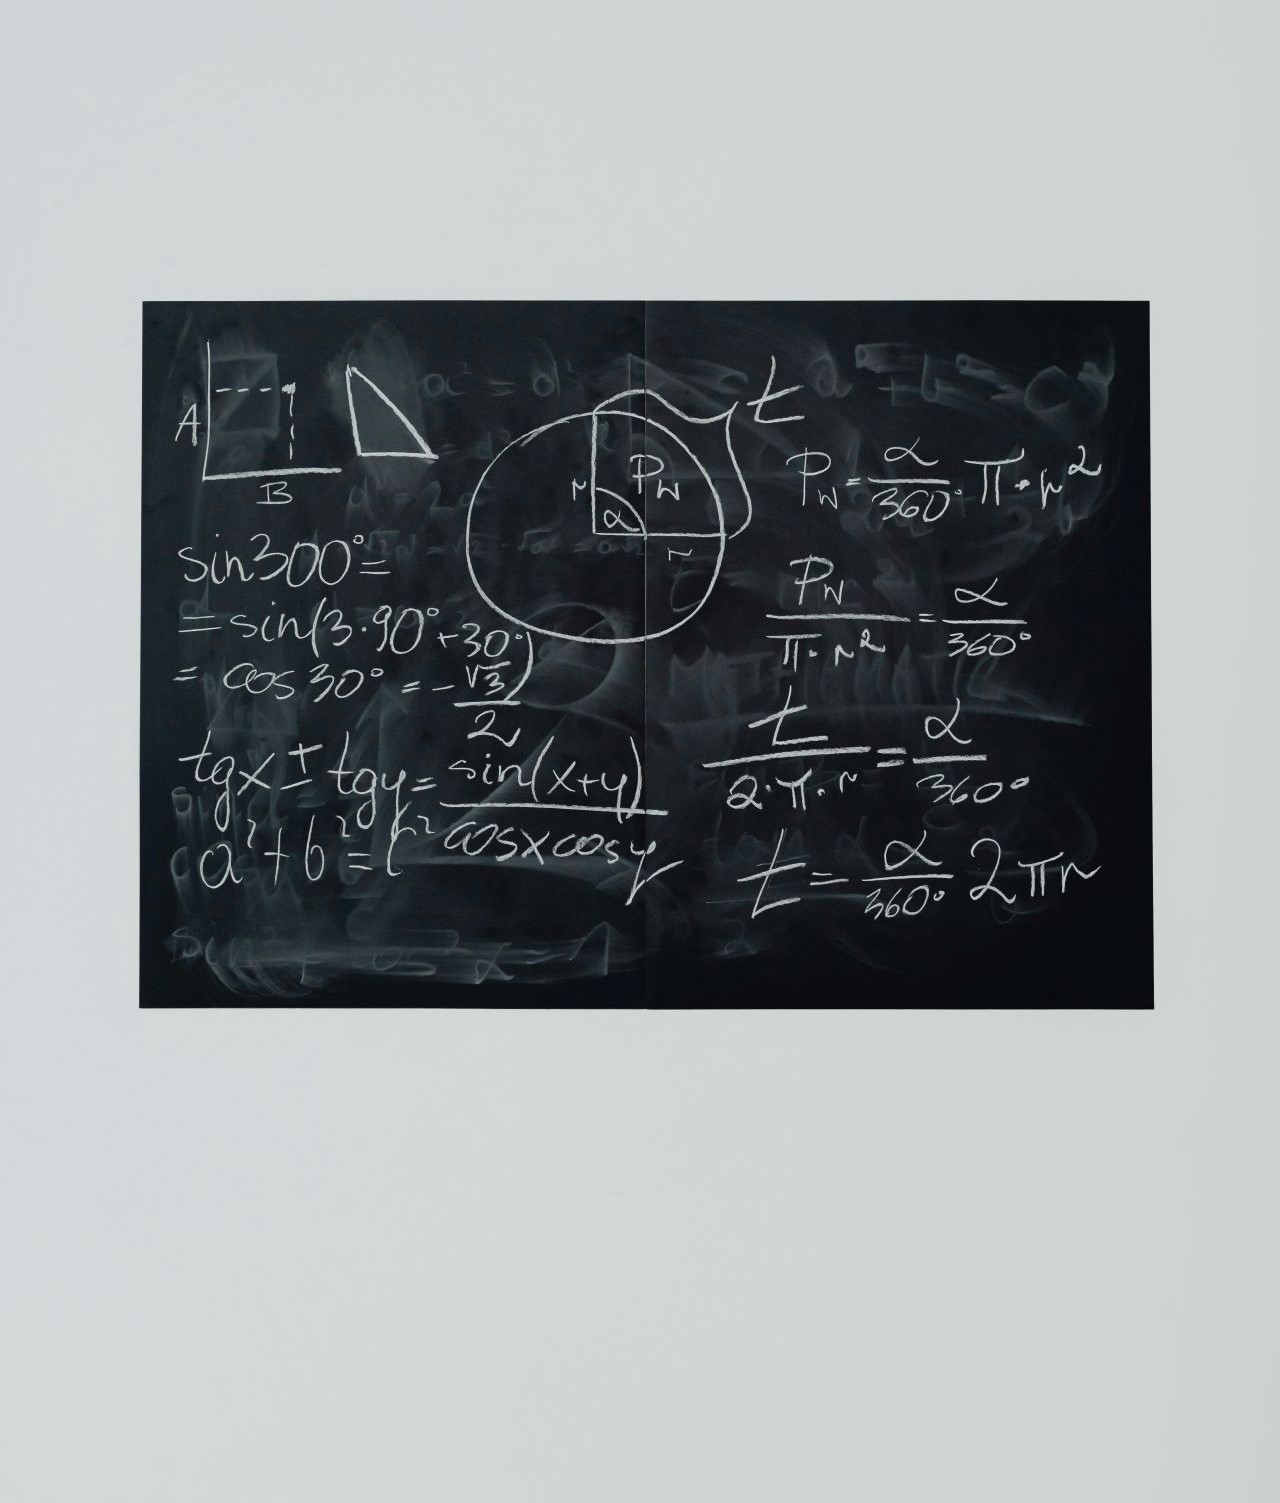 A
B
sin300°=
=sin(3·90°+30°)
= cos 30° = -√3/2
tgx ± tgy = sin(x+y)/cosxcosy
a²+b²=c²
t
r
P_W
α
r
P_W = α/360° · π · r²
P_W/π·r² = α/360°
t/2·π·r = α/360°
t = α/360° 2πr